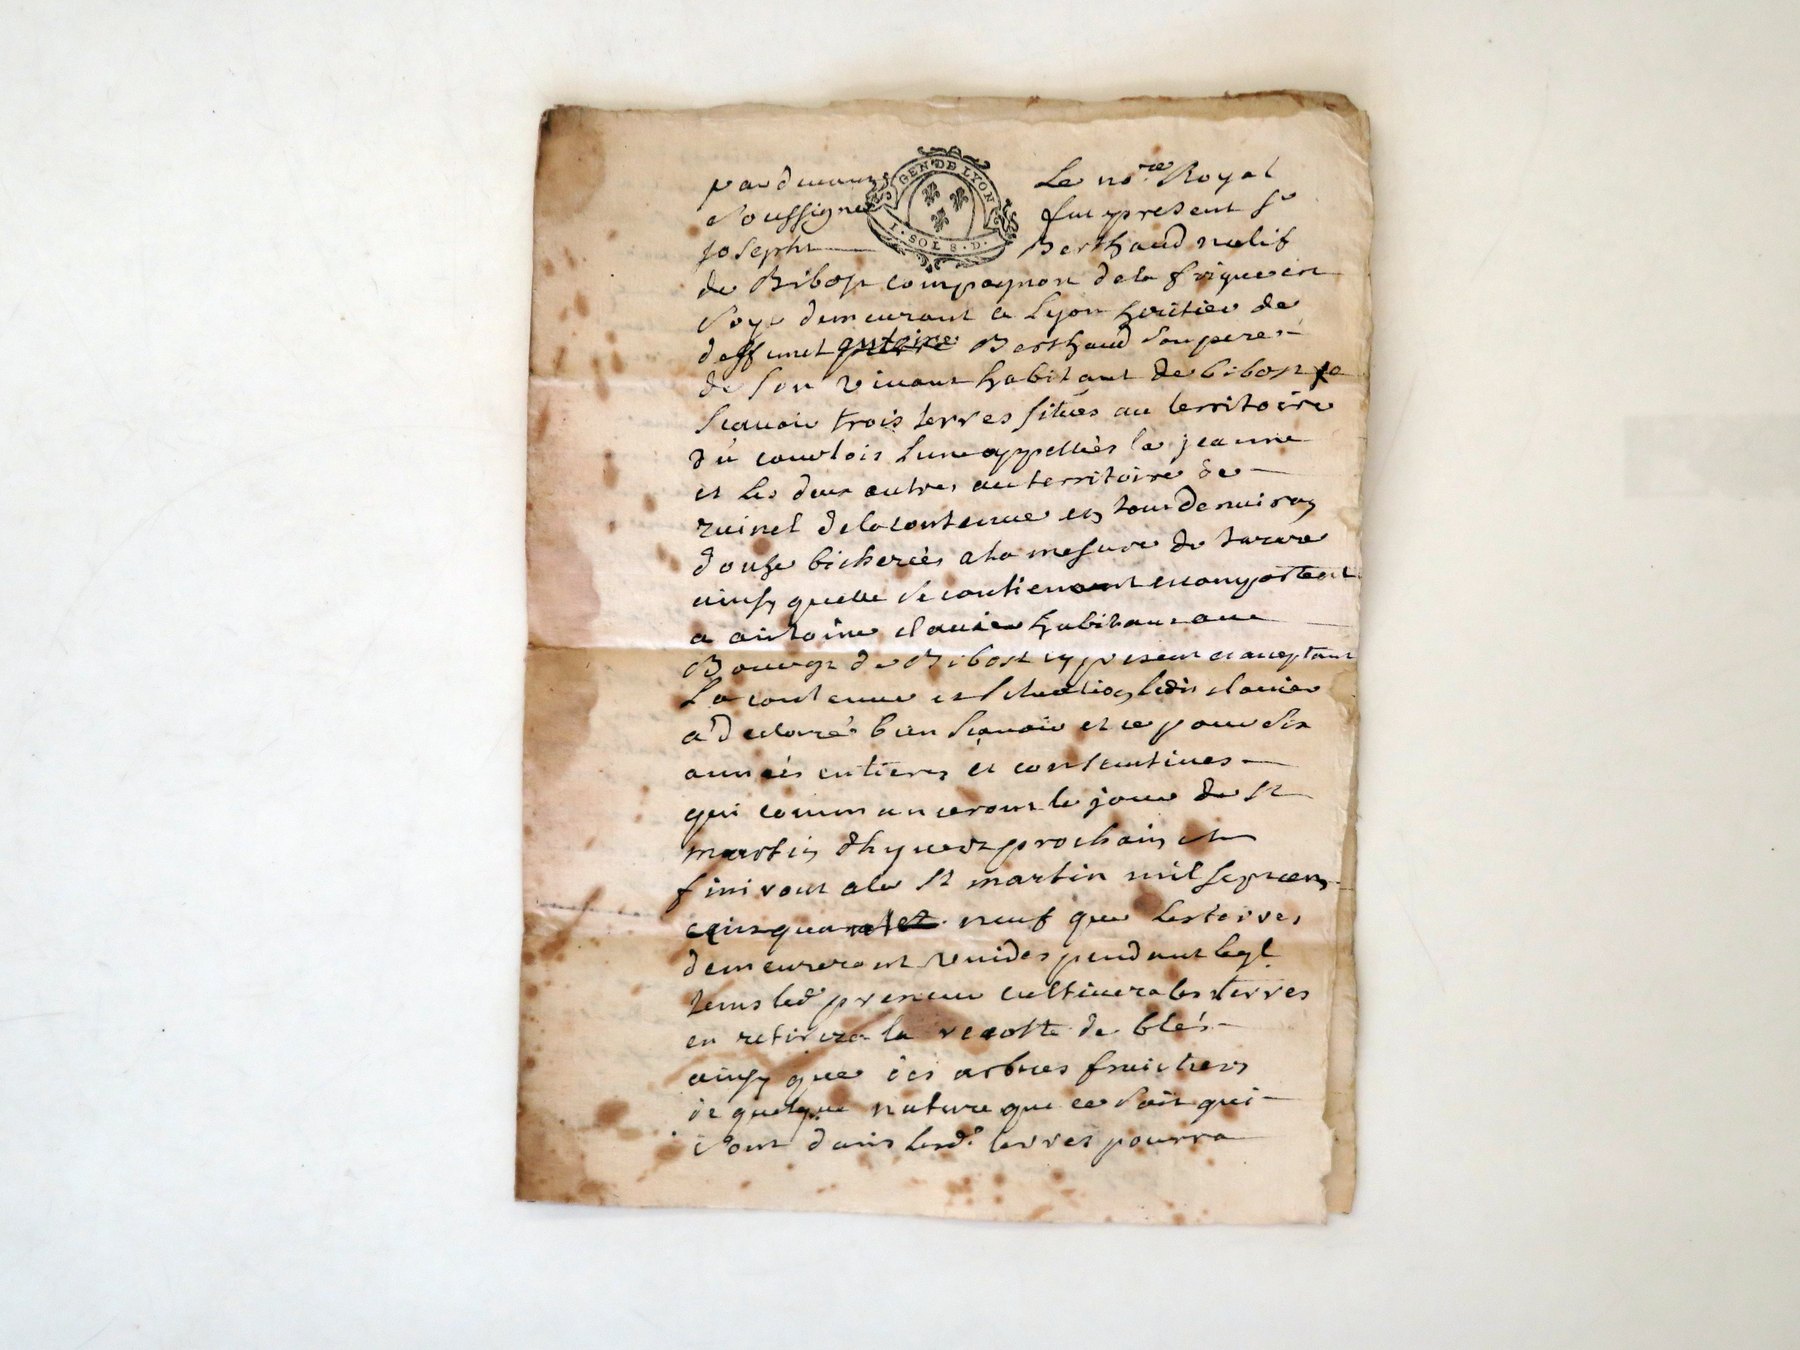 pardevant Le no.re Royal
Soussigné fut present Sr
GEN. DE LYON
I. SOL 8. D.
Joseph Berthaud natif
de Bibost compagnon de la friquen
Soye demeurant a Lyon heritier de
deffunct antoine Berthaud son pere
de son vivant habitant de bibost
Scavoir trois terres situés au territoire
du courtois lune appellées la jeanne
et les deux autres au territoire de
ruinel de la contenue en tout denviron
douze bicherées a la mesure de tarare
ainsy quelle se contiennent et comportent
a antoine clavier habitant au
Bourgt de Bibost cy present et acceptant
La contenue et situation ledit clavier
a declaré bien scavoir et ce pour six
années entieres et consecutives
qui commanceront le jour de st
martin dhyvert prochain et
finiront a la st martin mil sept cens
cinquante neuf que les terres
demeureront vuides pendant leql
tems led. preneur cultivera les terres
en retirera la recolte de blés
ainsy que des arbres fruictiers
de quelque nature que ce soit qui
sont dans lesd. terres pourra